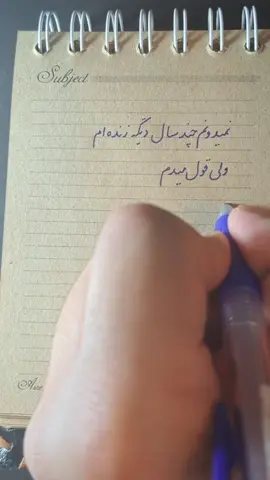 Subject
نمیدونم چند سال دیگه زنده ام
ولی قول میدم